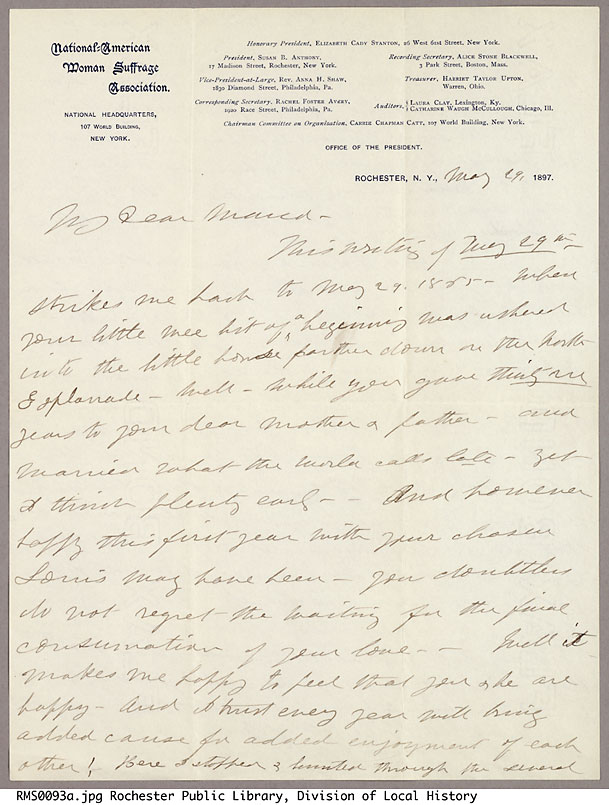 National-American
Woman Suffrage
Association.
NATIONAL HEADQUARTERS,
107 WORLD BUILDING,
NEW YORK.
Honorary President, ELIZABETH CADY STANTON, 26 West 61st Street, New York.
President, SUSAN B. ANTHONY,
17 Madison Street, Rochester, New York.
Vice-President-at-Large, REV. ANNA H. SHAW,
1830 Diamond Street, Philadelphia, Pa.
Corresponding Secretary, RACHEL FOSTER AVERY,
1920 Race Street, Philadelphia, Pa.
Recording Secretary, ALICE STONE BLACKWELL,
3 Park Street, Boston, Mass.
Treasurer, HARRIET TAYLOR UPTON,
Warren, Ohio.
Auditors, { LAURA CLAY, Lexington, Ky.
CATHARINE WAUGH McCULLOUGH, Chicago, Ill.
Chairman Committee on Organization, CARRIE CHAPMAN CATT, 107 World Building, New York.
OFFICE OF THE PRESIDENT.
ROCHESTER, N. Y., May 29, 1897.
My Dear Maud -
This writing of May 29th -
strikes me back to May 29. 1865 - when
your little wee bit of a beginning was ushered
into the little house farther down on the North
Esplanade - Well - while you gave thirty one
years to your dear mother & father - and
married what the world calls late - yet
I think plenty early - - And however
happy this first year with your chosen
Louis may have been - you doubtless
do not regret the waiting for the final
consumation of your love - - Well it
makes me happy to feel that you & he are
happy - And I trust every year will bring
added cause for added enjoyment of each
other! Here I stopped & hunted through the several
RMS0093a.jpg Rochester Public Library, Division of Local History